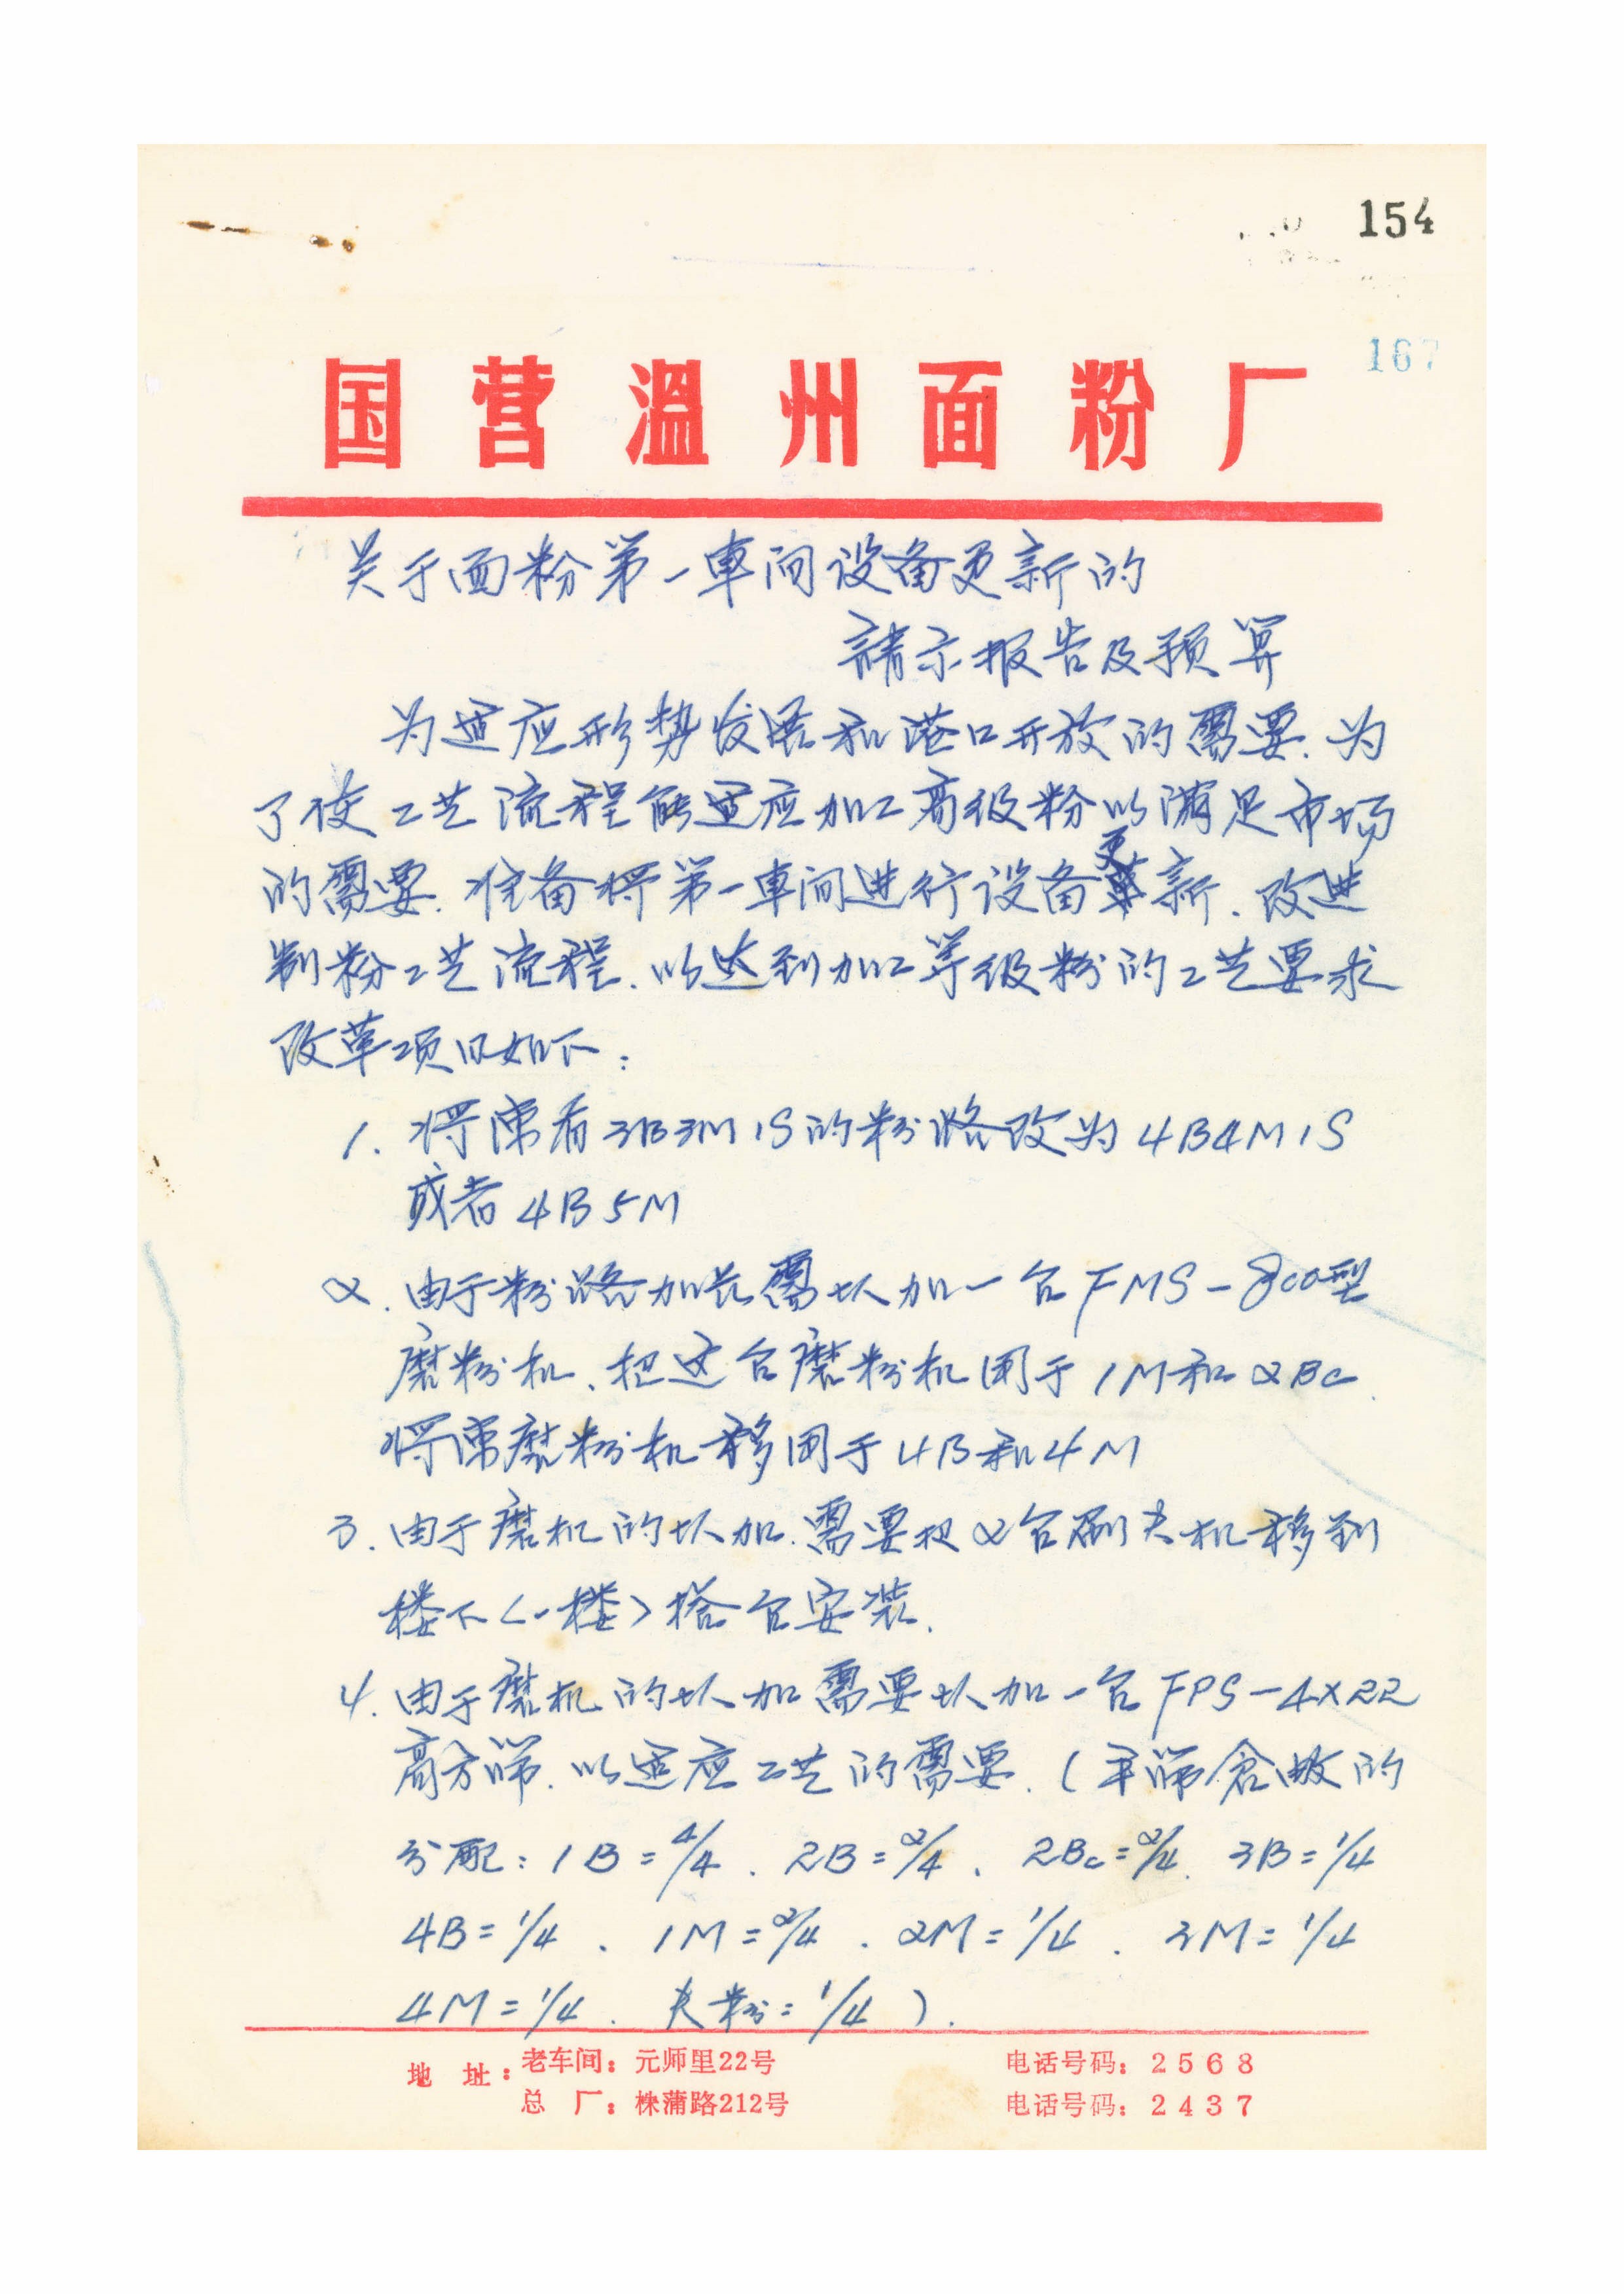 154
167
国营温州面粉厂
关于面粉第一车间设备更新的
請示报告及预算
为适应形势发展和港口开放的需要.为
了使工艺流程能适应加工高级粉以满足市场
的需要.准备将第一车间进行设备更新.改进
制粉工艺流程.以达到加工等级粉的工艺要求
改革项目如下:
1.将原有3B3M1S的粉路改为4B4M1S
或者4B5M
2.由于粉路加长需增加一台FMS-800型
磨粉机、把这台磨粉机用于1M和2Bc.
将原磨粉机移用于4B和4M
3.由于磨机的增加.需要把2台刷夫机移到
楼下<一楼>搭台安装.
4.由于磨机的增加需要增加一台FPS-4×22
高方筛.以适应工艺的需要.(平筛仓数的
分配:1B=4/4.2B=2/4、2Bc=2/4.3B=1/4
4B=1/4.1M=2/4.2M=1/4.3M=1/4
4M=1/4.夫粉=1/4).
地 址:老车间:元师里22号 电话号码:2568
总 厂:株蒲路212号 电话号码:2437